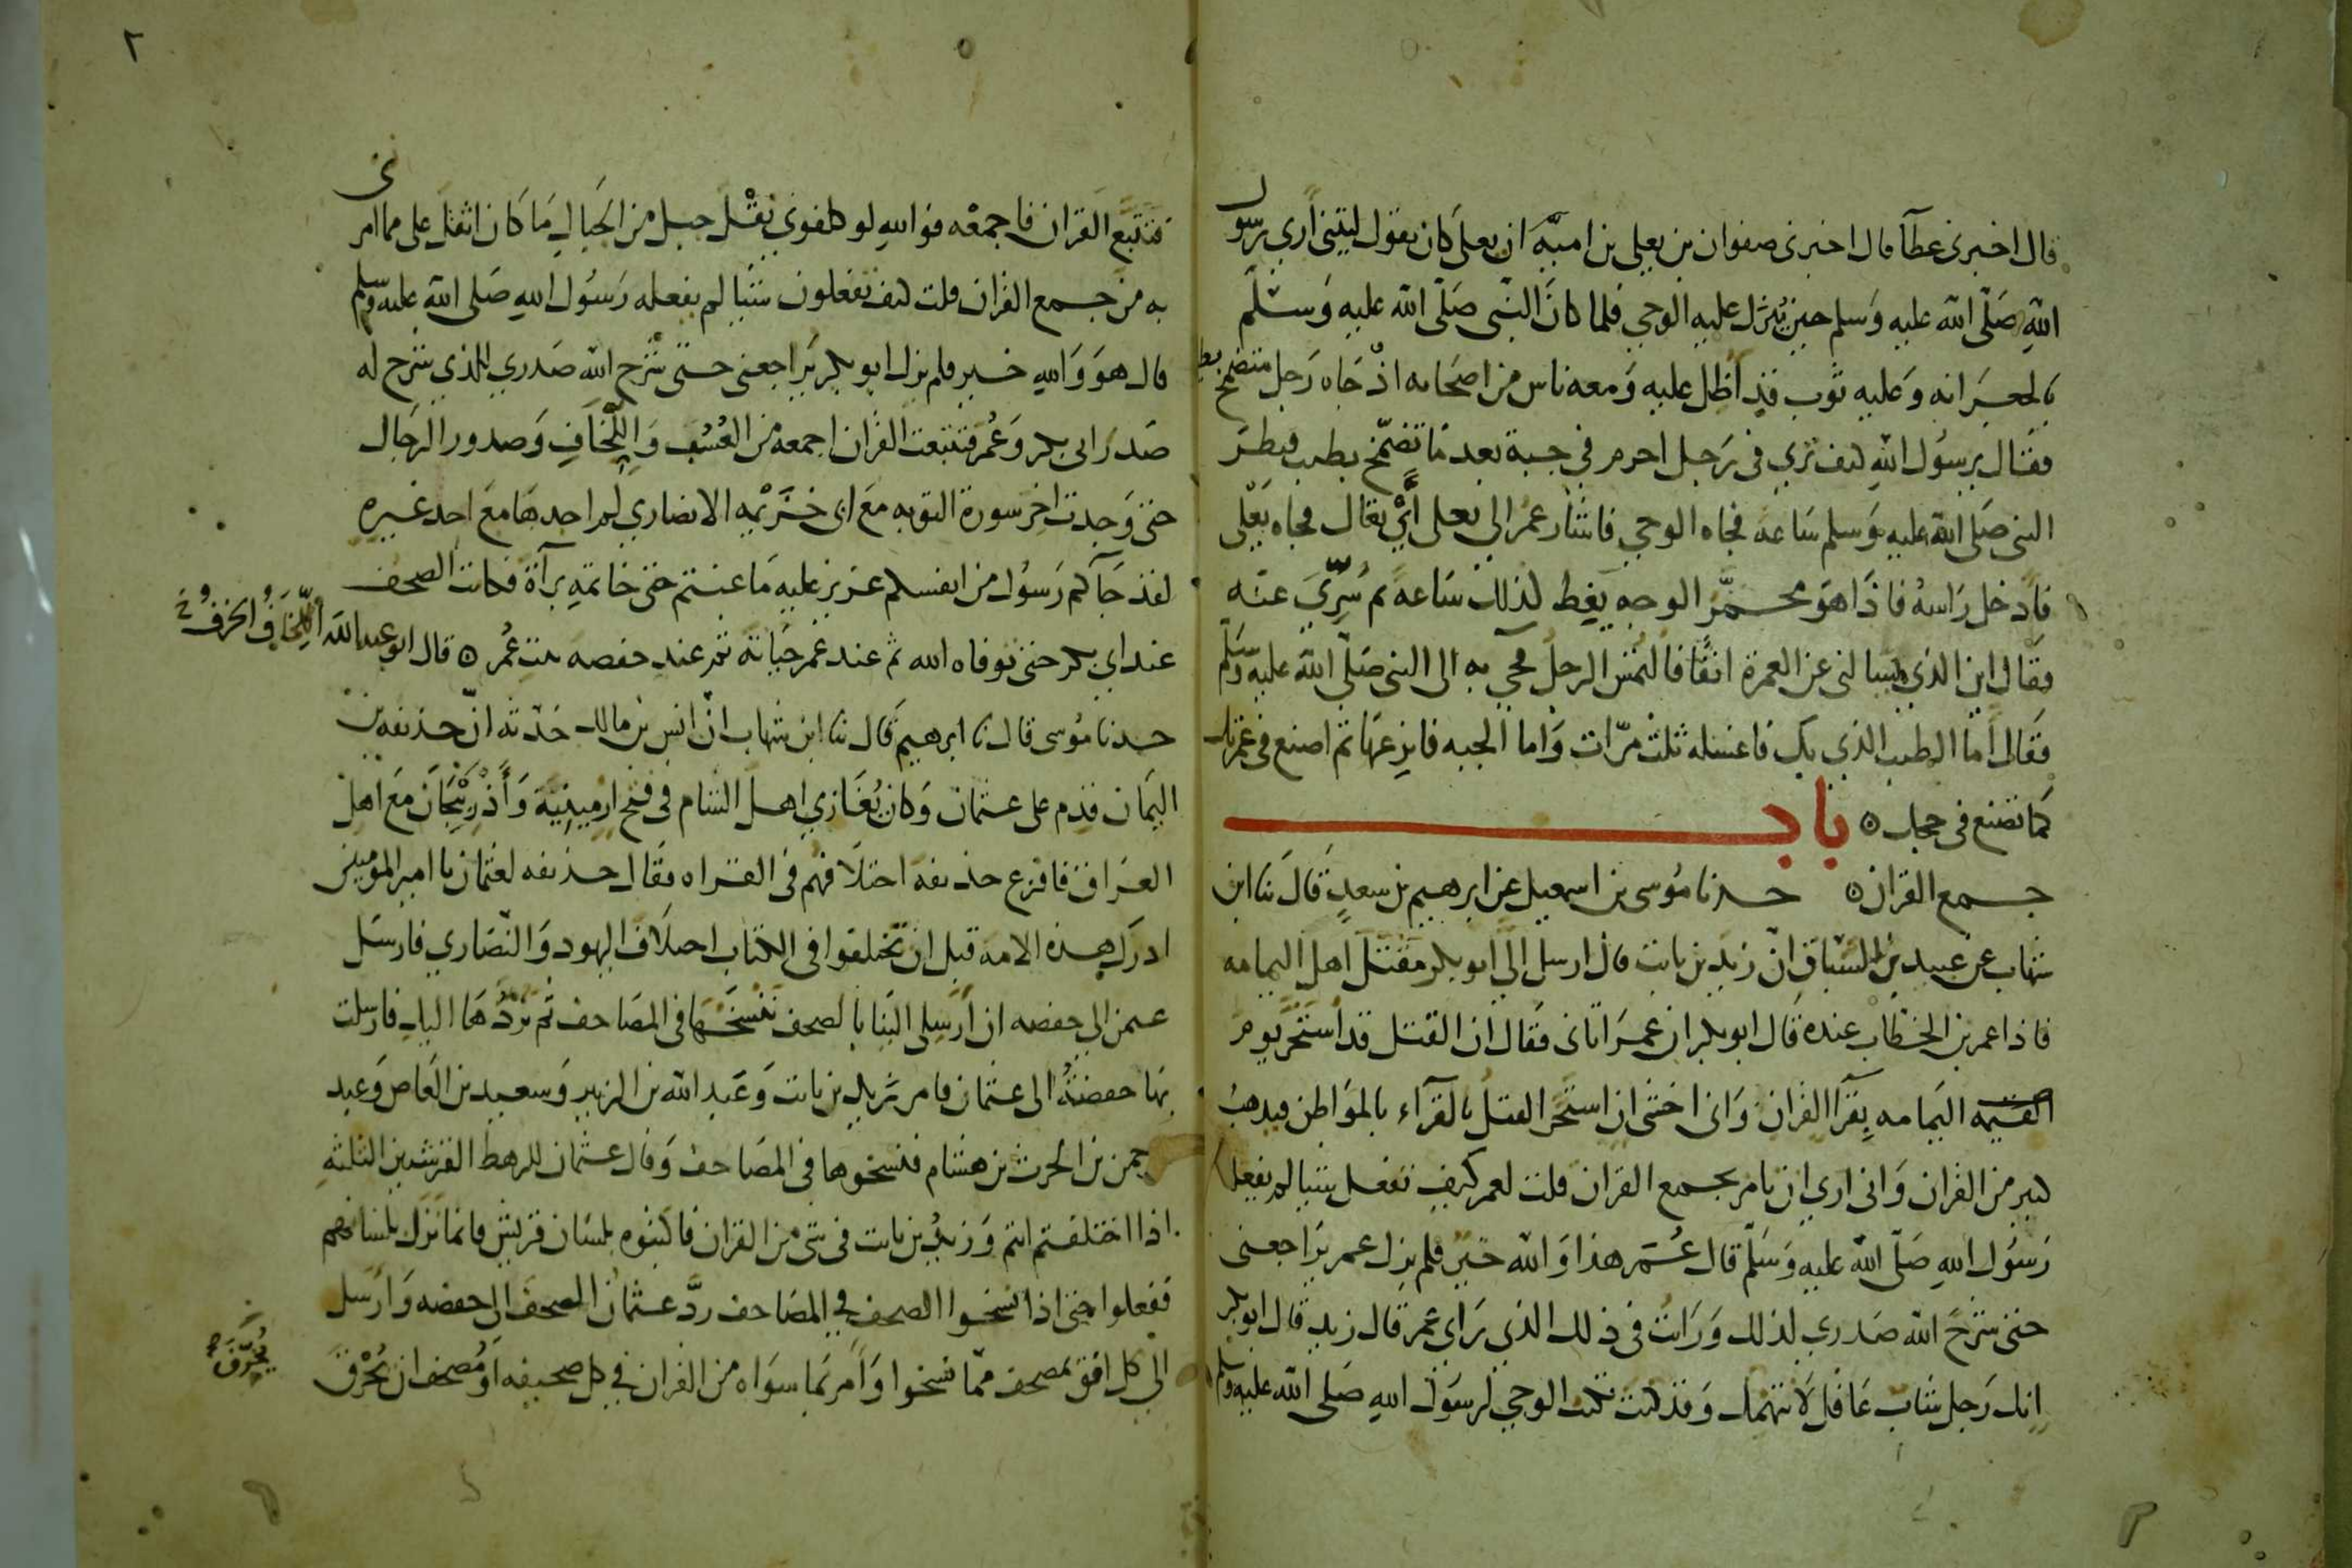 قال اخبرنى عطآ قال اخبرنى صفوان بن يعلى بن امية ان يعلى كان يقول ليتنى أرى رسول
الله صَلّى الله عليه وَسلم حين يُنْزل عليه الوحي فلما كانَ النّبى صَلّى الله عليه وَسَلّم
بالجعرانه وَعليه ثوب قد أظل عليه وَمعه ناس من اصحابه اذْ جَاه رَجل متضمخ بطيب
فقَال يرسُول الله كيف تري فى رَجل احرم في جبة بعد مَا تضمّخ بطيب فنظرَ
النبى صَلى الله عليه وَسلم سَاعة فجاه الوحي فاشار عمر الي يعلى أيْ تعَال فجاه يَعْلى
فادخل رَاسهُ فاذَا هوَ محمَرّ الوجه يغِط كذلك سَاعة ثم سُرّيَ عنه
فقَال اين الذي يسالنى عن العمرة انفًا فالتُمس الرجلُ فجي به الى النبى صَلّى الله عليه وسلم
فقال أما الطيب الذي بك فاغسله ثلث مرّات وَاما الجبه فانزعهَا ثم اصنع فى عمرتك
كما تصنع فى حجك ۞ باب
جمع القران ۞ حدثنا مُوسى بن اسمعيل عن ابرهيم بن سعدٍ قَالَ ثنا ابن
شهاب عن عبيد بن السَبّاق انّ زيد بن ثابت قال ارسل اليّ ابو بكر مَقْتل اهل اليمامه
فاذا عمر بن الخطاب عنده قال ابو بكر ان عمرَ اتانى فقال ان القتل قد استَحَرّ يوم
اليمَامه بقرّا القران وَانى اخشى ان استَحر القتلُ بالقُرّآء بالموَاطن فيذهبُ
كثير من القران وَانى اري ان تامر بجمع القران قلت لعمر كيف تفعل شيَا لم يفعله
رَسوُل اللهِ صَلّى الله عليه وَسَلّم قال عُمَر هذا وَالله خَيْر فلم يزل عمر يرَاجعنى
حتى شَرحَ الله صَدري لذلك وَرَاتُ فى ذلك الذي رَاي عمر قال زيد قال ابو بكر
انك رَجل شاب عَاقل لَا نتهمك وَقد كنت تكتب الوحيَ لرسوَل اللهِ صَلى الله عليه وسلم
٢
فتتَبّع القران فاجمعْه فوَاللهِ لو كلفونى نقْل جبل من الجَبال مَا كان اثقل على مما امرنى
به من جمع القران قلت كيف تفعلون شيَا لم يفعله رَسوُل اللهِ صَلى الله عليه وسلم
قال هوَ وَاللهِ خير فلم يزل ابو بكر يَراجعنى حتى شَرح الله صَدري للذي شرح له
صَدرَ ابى بكر وَعُمر فتتبعت القرْان اجمعه من العُسُب وَاللِّخَافِ وَصدور الرجَال
حتى وَجدت اخر سورة التوبه مَع ابى خُزَيْمه الانصاري لم اجدهَا معَ احد غيره
لقد جَآكم رَسوُل من انفسكم عزيز عليه مَا عنتم حتى خاتمةِ برآة فكانت الصحف
عند ابي بكر حتى توفاه الله ثم عند عُمر حَياته ثم عند حفصه بنت عُمر ۞ قال ابو عبدالله اللِّخَافُ الخزفُ
حدثنا مُوسى قال ثنا ابرهيم قَال ثنا ابن شهاب انّ انس بن مالك حَدّثه انّ حذيفه بن
اليمَان قدم على عثمان وَكان يُغَازي اهل الشام فى فتح ارمينِيَة وَأَذرَبيْجَانَ معَ اهل
العرَاق فافزع حذيفه اختلَافهم فى القراه فقَال حذيفه لعثمَان يا امير المومنين
ادرك هذه الامه قبل ان يختلفوا فى الكتاب اختلَاف اليهود وَالنّصَاري فارسَل
عثمن الي حفصه ان أرسِلى الينَا بالصحف ننسَخها فى المصَاحف ثم نرُدّهَا اليك فارسلت
بهَا حفصَةُ الى عثمان فامر زيد بن ثابت وَعَبد الله بن الزبير وَسعيد بن العَاص وَعبد
الرحمن بن الحرث بن هشام فنسخوها فى المصَاحف وَقال عثمان للرهط القرشيين الثلثه
اذا اختلفتم انتم وَزيدُ بن ثابت فى شى من القران فاكتبوه بلسَان قريش فانمَا نزل بلسَانهم
ففعلوا حتى اذا نسخوا الصحف في المصَاحف ردّ عثمان الصحف الي حفصه وَارسل
الي كل افق بمصحف ممّا نسخوا وَأَمر بَما سوَاه من القران في كل صحيفه اَو مُصحف ان يُحْرَق